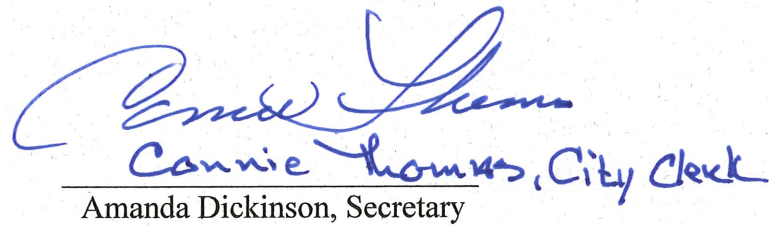 Connie Thomas
Connie Thomas, City Clerk
Amanda Dickinson, Secretary